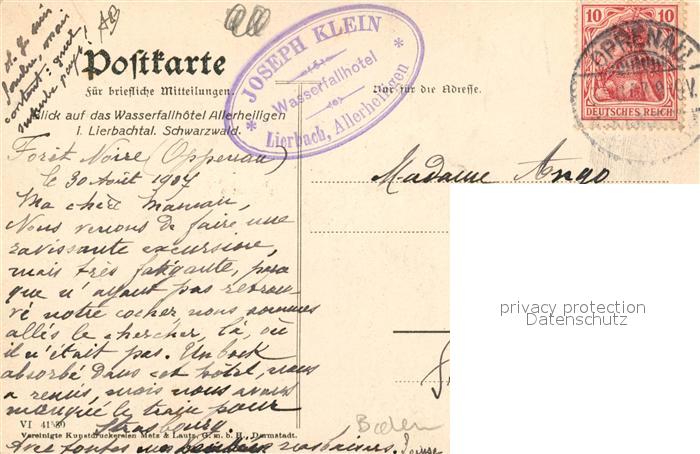 d. J. suis
seule, mais
contente: quel
superbe pays!
AB
Postkarte
Für briefliche Mitteilungen.
Nur für die Adresse.
Blick auf das Wasserfallhôtel Allerheiligen
i. Lierbachtal. Schwarzwald.
* JOSEPH KLEIN *
Wasserfallhotel
Lierbach, Allerheiligen
10 10
OPPENAU
DEUTSCHES REICH
Forêt Noire (Oppenau)
le 30 Août 1907
Ma chère Maman,
Nous venons de faire une
ravissante excursion,
mais très fatigante, parce
que n'ayant pas retrou-
vé notre cocher, nous sommes
allés le chercher, là, où
il n'était pas. Un bock
absorbé dans cet hôtel, nous
a remis, mais nous avons
manqué le train pour
Strasbourg.
Avec toutes nos baisers.
Madame Ango
privacy protection
Datenschutz
Baden
VI 41380
Vereinigte Kunstdruckereien Metz & Lautz, G. m. b. H., Darmstadt.